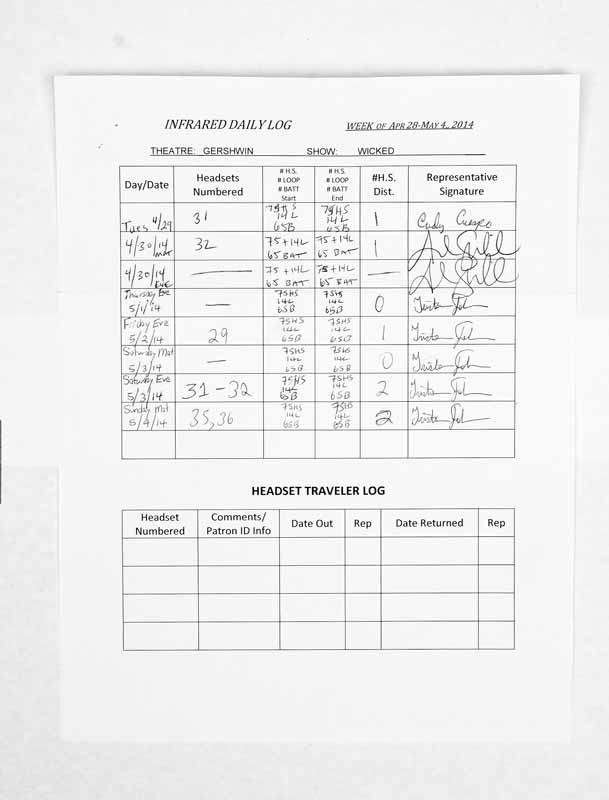 INFRARED DAILY LOG WEEK OF APR 28-MAY 4, 2014
THEATRE: GERSHWIN SHOW: WICKED
Day/Date Headsets Numbered # H.S. # LOOP # BATT Start # H.S. # LOOP # BATT End #H.S. Dist. Representative Signature
Tues 4/29 31 75HS 14L 65B 75HS 14L 65B 1 Cody
4/30/14 MAT 32 75+14L 65 BAT 75+14L 65 BAT 1
4/30/14 EVE — 75+14L 65 BAT 75+14L 65 BAT —
Thursday Eve 5/1/14 — 75HS 14L 65B 75HS 14L 65B 0
Friday Eve 5/2/14 29 75HS 14L 65B 75HS 14L 65B 1
Saturday Mat 5/3/14 — 75HS 14L 65B 75HS 14L 65B 0
Saturday Eve 5/3/14 31-32 75HS 14L 65B 75HS 14L 65B 2
Sunday Mat 5/4/14 35,36 75HS 14L 65B 75HS 14L 65B 2
HEADSET TRAVELER LOG
Headset Numbered Comments/ Patron ID Info Date Out Rep Date Returned Rep